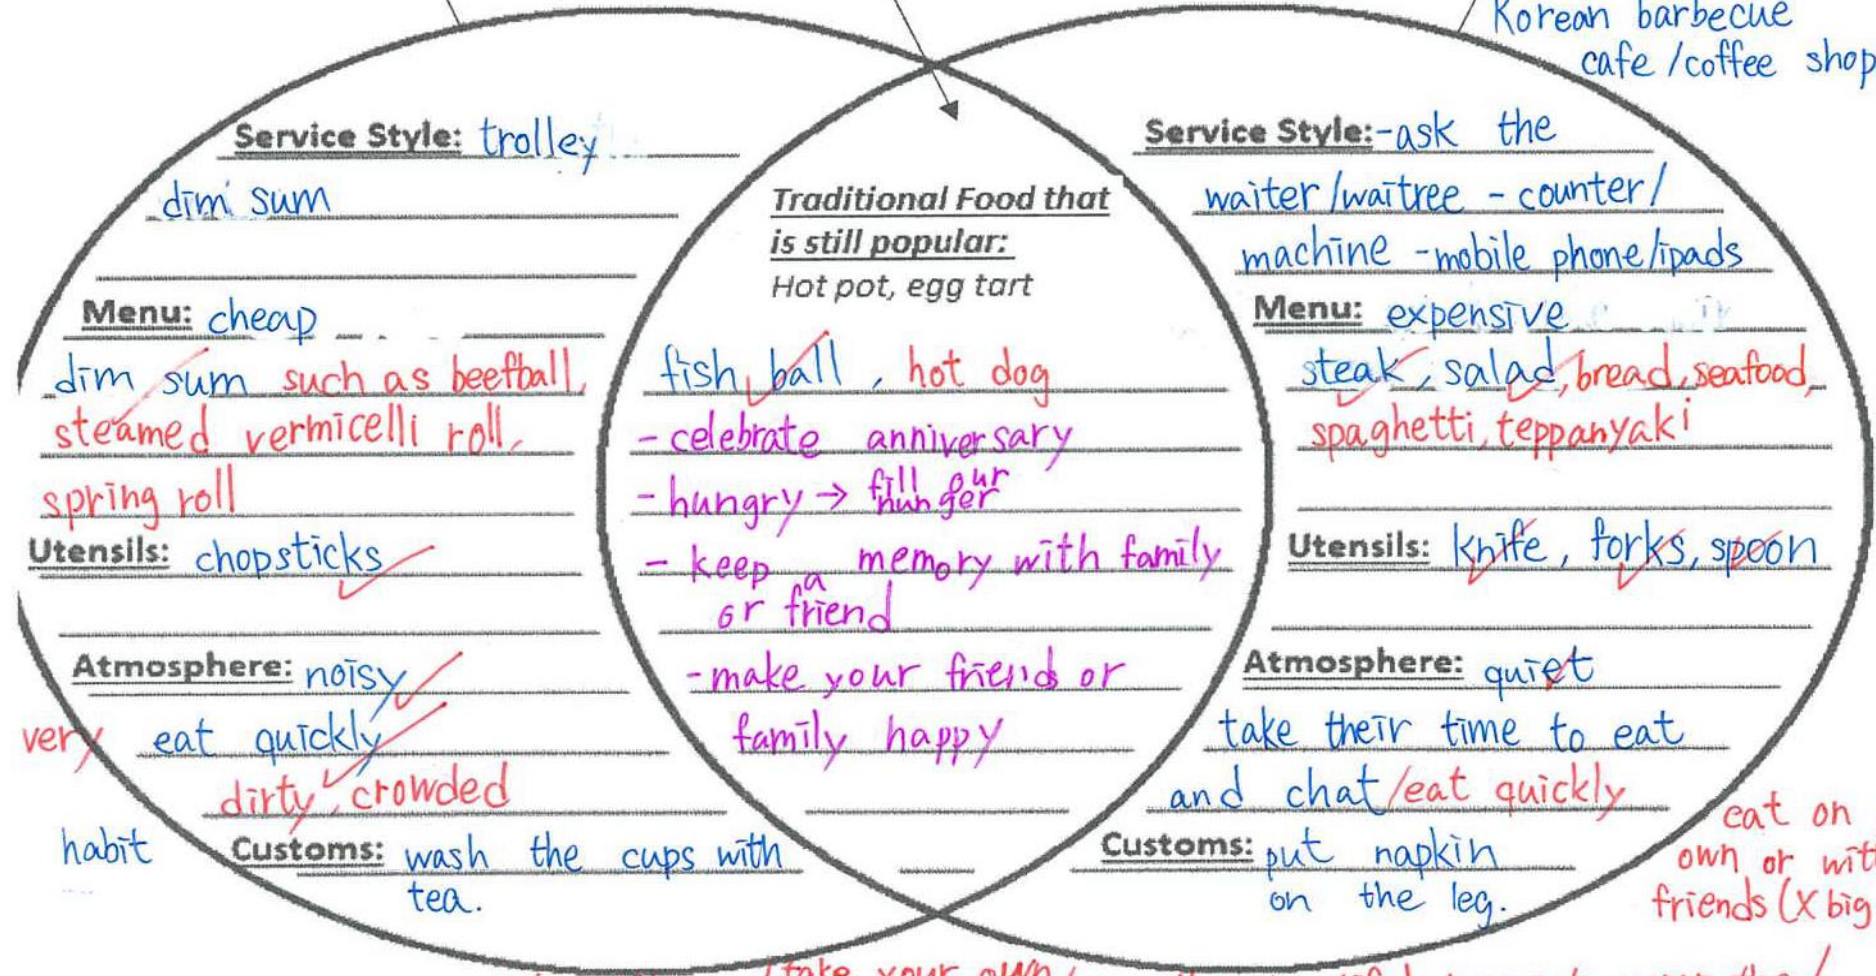 Korean barbecue
cafe /coffee shop
Service Style: trolley
dim sum
Menu: cheap
dim sum such as beefball,
steamed vermicelli roll,
spring roll
Utensils: chopsticks
Atmosphere: noisy
very eat quickly
dirty, crowded
habit
Customs: wash the cups with
tea.
Traditional Food that
is still popular:
Hot pot, egg tart
fish ball, hot dog
- celebrate anniversary
- hungry → fill our
hunger
- keep a memory with family
or friend
- make your friend or
family happy
Service Style: -ask the
waiter/waitree - counter/
machine -mobile phone/ipads
Menu: expensive
steak, salad, bread, seafood,
spaghetti, teppanyaki
Utensils: knife, forks, spoon
Atmosphere: quiet
take their time to eat
and chat/eat quickly
Customs: put napkin
on the leg.
eat on
own or wit
friends (X big
take your own